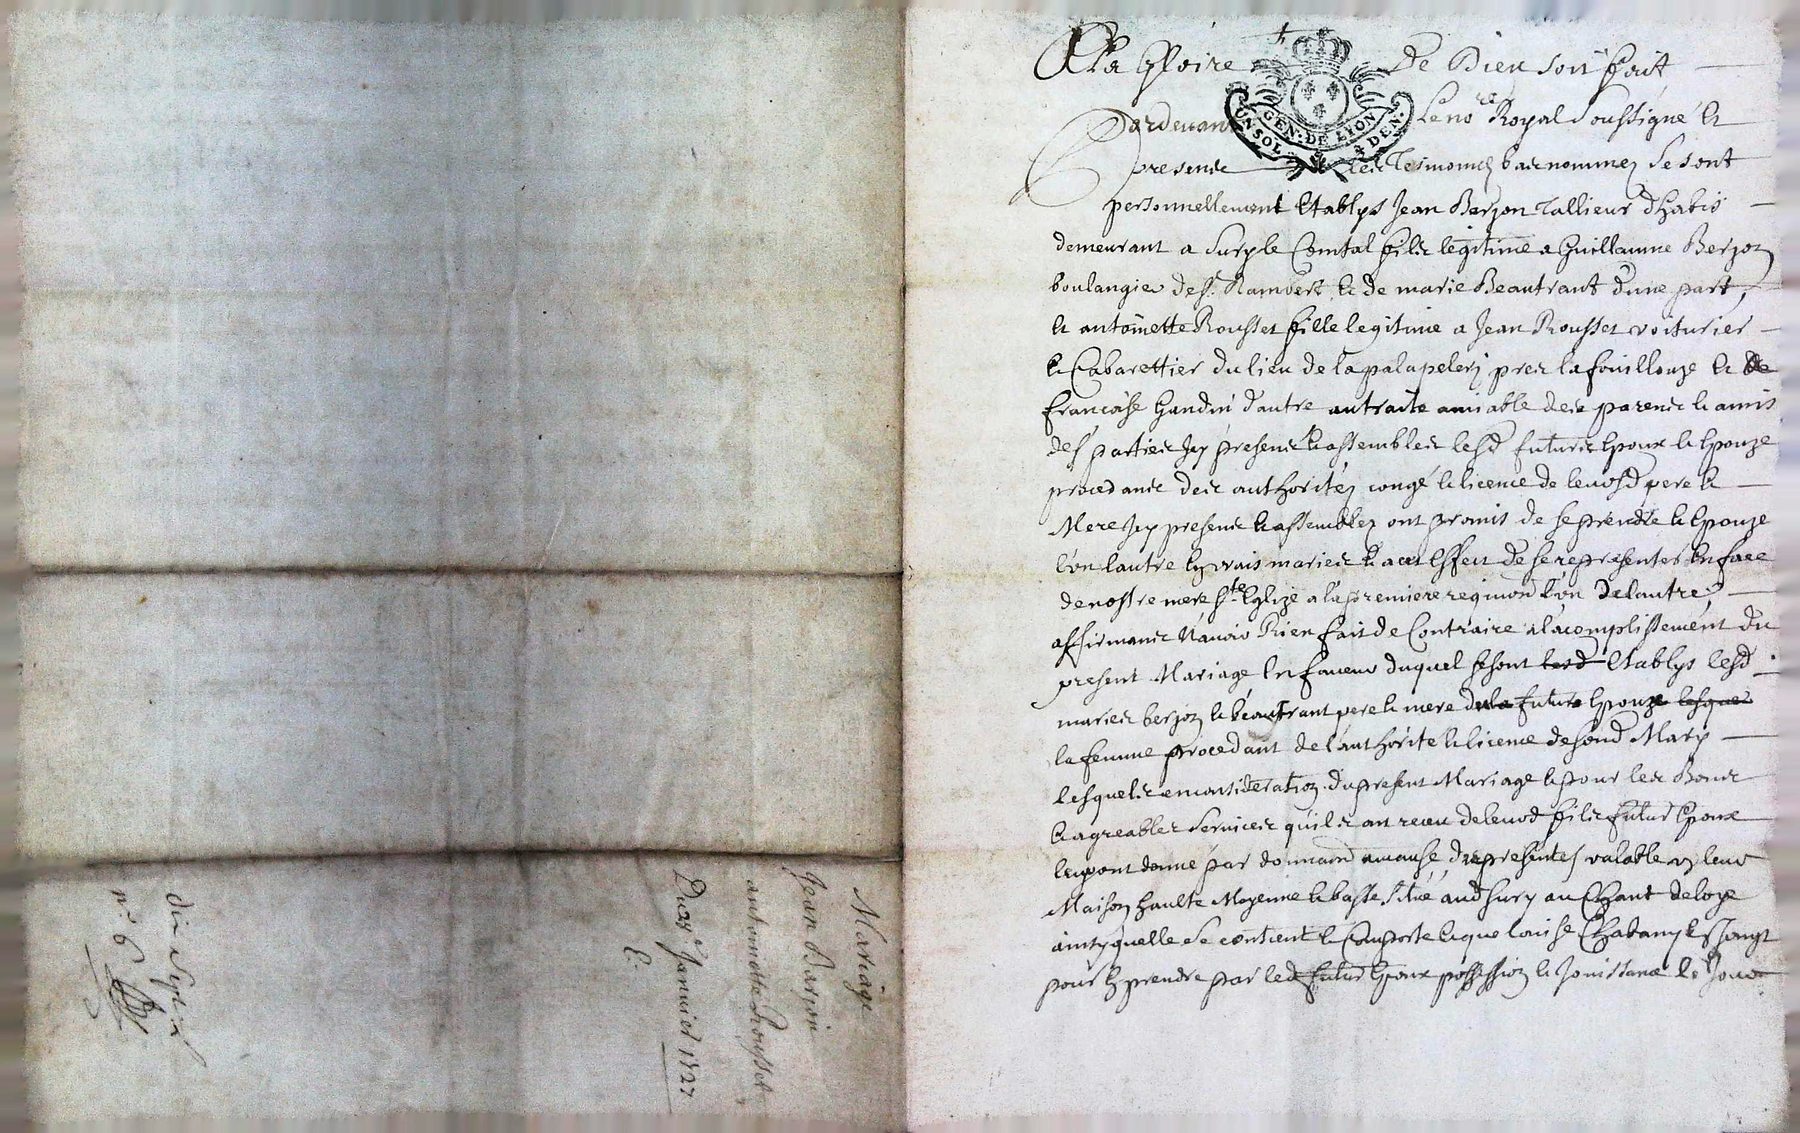 A la gloire de Dieu soit fait
GEN. DE LYON
UN SOL 4 DEN.
Pardevant Le nore Royal soussigné et
presence des tesmoins bas nommez se sont
personnellement Etablys Jean Berjon tallieur dhabis
demeurant a Sury le Comtal fils legitime a Guillaume Berjon
boulangier de St. Rambert et de marie Beautrant d'une part,
et antoinette Rousset fille legitime a Jean Rousset voiturier
et Cabarettier du lieu de la palapelery pres la fouillouze et de
francoise Gandin d'autre au traité amiable des parens et amis
des parties Icy presens et assembles lesd futurs Epoux et Epouze
procedans des authoritéz congé et licence de leursd pere et
Mere Icy presens et assemblez ont promis de se prendre et Epouze
l'un lautre En vrais maries et a cet Effect de se representer En face
de nostre mere Ste Eglize a la premiere requision l'un de lautre,
affirmans N'avoir Rien fait de Contraire a lacomplissement du
present Mariage En faveur duquel se sont lesd Etablys lesd
maries berjon et beautrant pere et mere du la futur Epouze lesquel
la femme procedant de l'authorite et licence de sond Mary
lesquels en consideration du present Mariage et pour les Bons
et agreables services quils ont receu de leurd fils futur Epoux
luy ont donné par donnaon a cause des presentes valable En leur
Maison haulte Moyenne et basse Situé aud sury au Chant de loye
ainsy quelle se contient et Comporte
pour En prendre par led futur Epoux possession et Jouissance
Mariage
Jean Barjon
antoinette Rousset
Du 23e Janvier 1727
dix sept
n.° 6